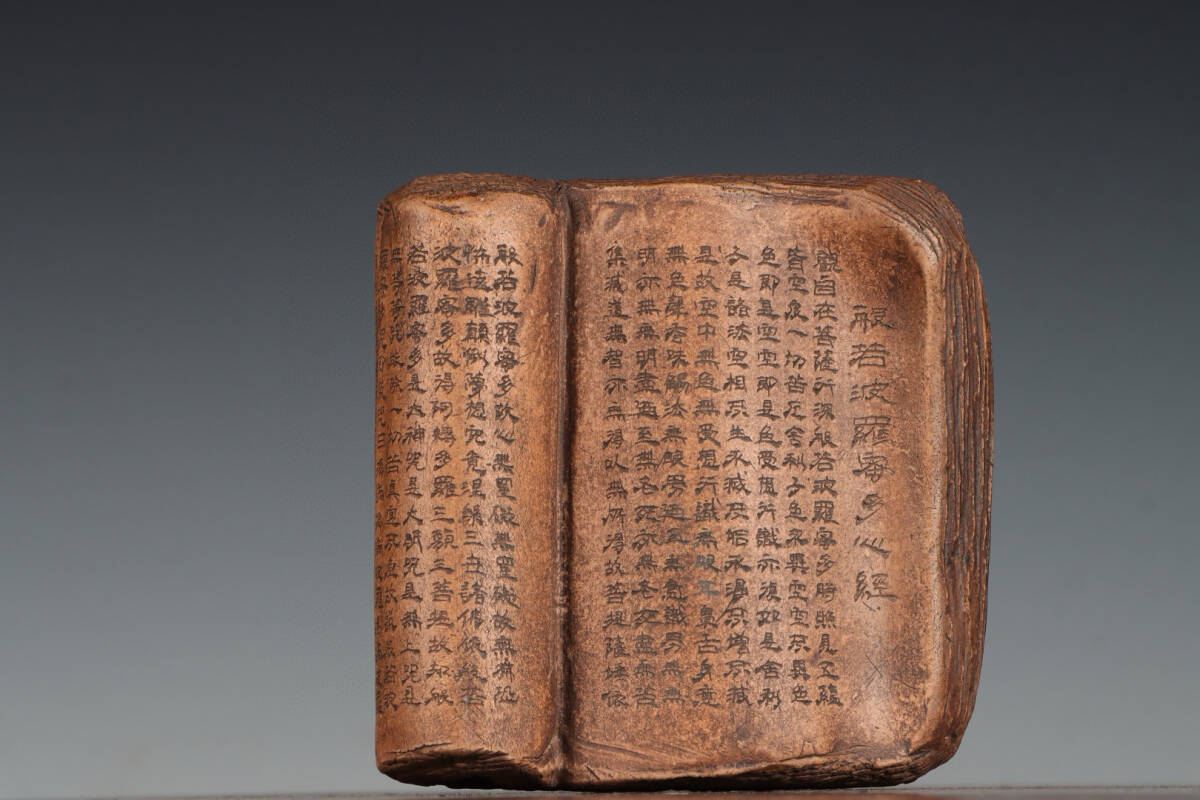 般若波羅蜜多心經
觀自在菩薩行深般若波羅蜜多時照見五蘊
皆空度一切苦厄舍利子色不異空空不異色
色即是空空即是色受想行識亦復如是舍利
子是諸法空相不生不滅不垢不淨不增不減
是故空中無色無受想行識無眼耳鼻舌身意
無色聲香味觸法無眼界乃至無意識界無無
明亦無無明盡乃至無老死亦無老死盡無苦
集滅道無智亦無得以無所得故菩提薩埵依
般若波羅蜜多故心無罣礙無罣礙故無有恐
怖遠離顛倒夢想究竟涅槃三世諸佛依般若
波羅蜜多故得阿耨多羅三藐三菩提故知般
若波羅蜜多是大神咒是大明咒是無上咒是
無等等咒能除一切苦真實不虛故說般若波